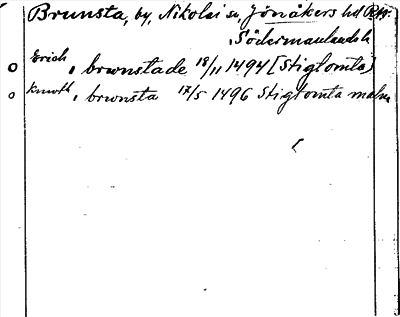 Brunsta, by, Nikolai sn Jönåkers hd
Södermanlands l.
Erich, brwnstade 18/11 1494 (Stigtomta)
Knwth, brwnsta 17/5 1496 Stigtomta malm